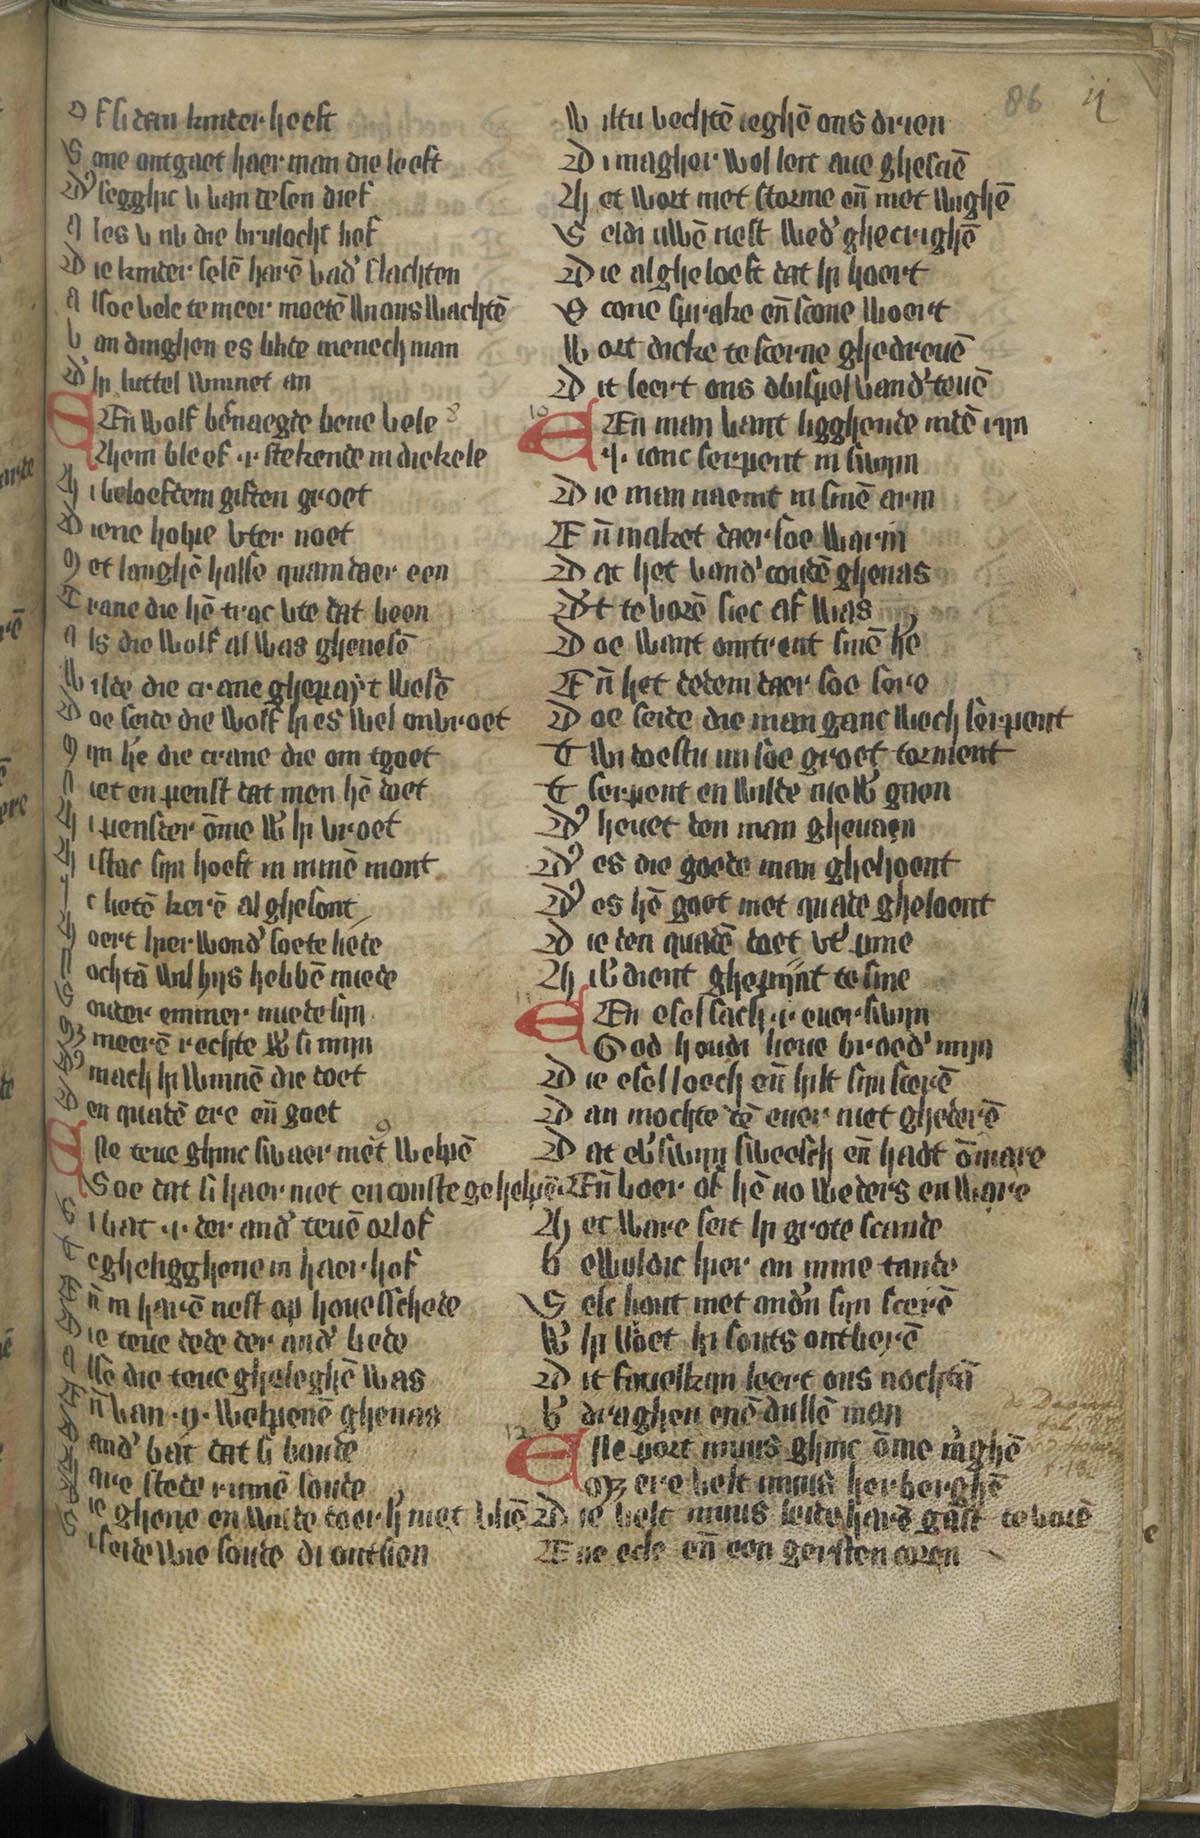 86 ij
O f si dan kinder heeft
S one ontgaet haer man die leeft
D' segghic v van desen dief
A les v nv die brulocht lief
D ie kinder selē harē vad' slachten
A lsoe vele te meer moetē wi ons wachtē
V an dinghen es blide menech man
D' hi luttel winnet an
En wolf beñaegde bene vele 8
Hem bleef .i. stekende in die kele
H i beloefdem giften groet
D iene holpe vter noet
M et langhē halse quam daer een
C rane die hē trac vte dat been
A ls die wolf al was ghenesē
W ilde die crane ghepayt wesē
D oe seide die wolf hi es wel onvroet
M jn h'e die crane die om tgoet
N iet en penst dat men hē doet
H i penster ōme w' hi vroet
H i stac sijn hoeft in minē mont
I c lietē kerē al ghesont
H oert hier wond' soete liede
N ochtā wil hijs hebbē miede
S onder emmer miede sijn
M meerē rechte w' si mijn
D' mach hi winnē die doet
D en quadē ere eñ goet
Ene teue ghinc swaer met welpē 9
Soe dat si haer niet en conste ghehelpē
S i bat .i. der and' teuē orlof
T e gheligghene in haer hof
E ñ in harē nest op houesschede
D ie teue dede der and' bede
A lse die teue gheleghē was
E ñ van .ij. welpenē ghenas
D and' bat dat si boude
H are stede rumē soude
D ie ghene en wilde doer h' niet vliē
S i seide wie soude di ontsien
W iltu vechtē ieghē ons drien
D i magher wel leet aue ghesciē
H et wort met storme eñ met wighē
S eldi uwē nest wed' ghecrighē
D ie al gheloeft dat hi hoert
S cone sprake eñ scone woert
W ort dicke te scerne ghedreuē
D it leert ons dbispel vand' teuē
10 En man vant ligghende indē rijn
.I. ionc serpent in swijn
D ie man naemt in sinē arm
E ñ maket daer soe warm
D at het vand' coudē ghenas
D' t te vorē siec af was
D oe want omtrent sinē hē
E ñ het dedem daer soe sere
D oe seide die man ganc wech serpent
T wi doestu mi soe groet torment
T serpent en wilde niew' gaen
D' heuet den man gheuaen
D' es die goede man ghehoent
D' es hē goet met quade gheloent
D ie den quadē doet vt' pine
H i v'dient ghepijnt te sine
11 En esel sach .i. euer swijn
God houdi lieue broed' mijn
D ie esel loech eñ hilt sijn scerē
D an mochte dē euer niet ghederē
D at eu' swijn sweech eñ hadt ōmare
Eñ voer of hē no weders en ware
H et ware seit hi grote scande
B ewuldic hier an mine tande
S elc hout met and'n sijn scerē
W' hi woet hi souts ontberē
D it fauelkijn leert ons nochtā
V' draghen enē dullē man
12 Ene port muus ghinc ōme m'ghē
Mere velt muus herberghē
D ie velt muus seide harē gast te vorē
E ne eekle eñ een gersten coren